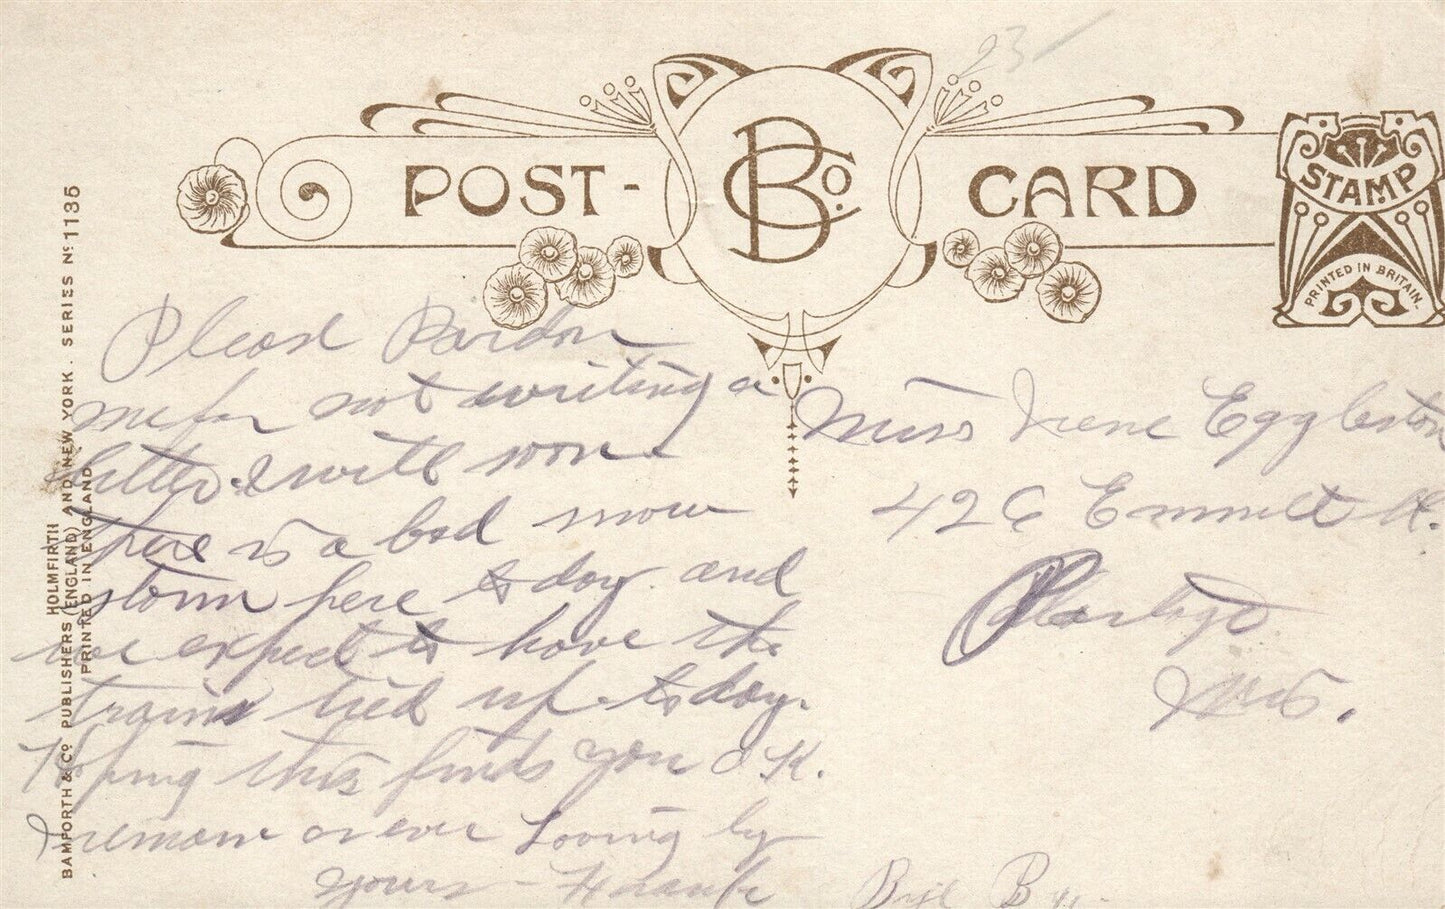 23
POST-CARD
BCo.
STAMP
PRINTED IN BRITAIN.
BAMFORTH & Co PUBLISHERS (ENGLAND) AND NEW YORK. SERIES No 1135
HOLMFIRTH
PRINTED IN ENGLAND
Pleas Pardon
me for not writing a
letter. I will soon
there is a bad snow
storm here to day. and
we expect to have the
trains tied up to day.
Hoping this finds you O.K.
I remain as ever Loving ly
yours - Frank
Bye By.
Miss Irene Eggleston
426 Emmett St.
Portage
Wis.